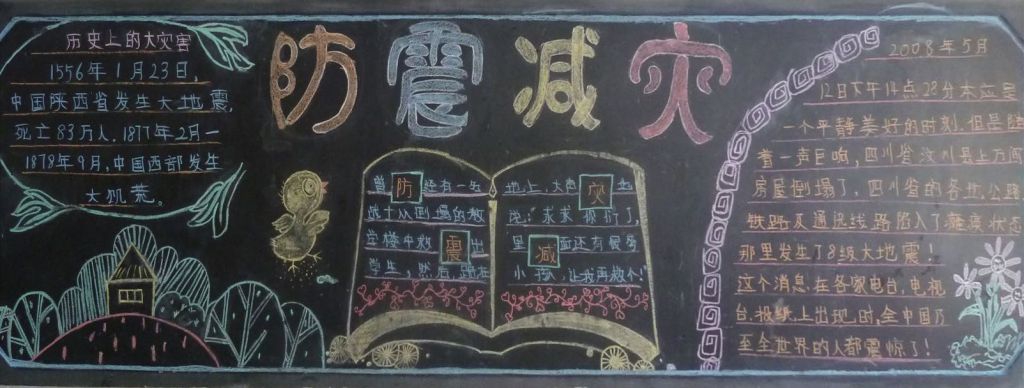 防震减灾
历史上的大灾害
1556年1月23日,
中国陕西省发生大地震,
死亡83万人.1877年2月一
1878年9月,中国西部发生
大饥荒。
防 有一名
战士从倒塌的教
学楼中救 震 出
学生,然后
地上,大 灾
说:"求求 你们了,
里 减 面还有很多
小孩,让我再救个!"
2008年5月
12日下午14点28分本应是
一个平静美好的时刻.但是随
着一声巨响,四川省汶川县上万间
房屋倒塌了,四川省的各地,公路
铁路及通讯线路陷入了瘫痪状态
那里发生了8级大地震!
这个消息在各家电台.电视
台.报纸上出现时,全中国乃
至全世界的人都震惊了!